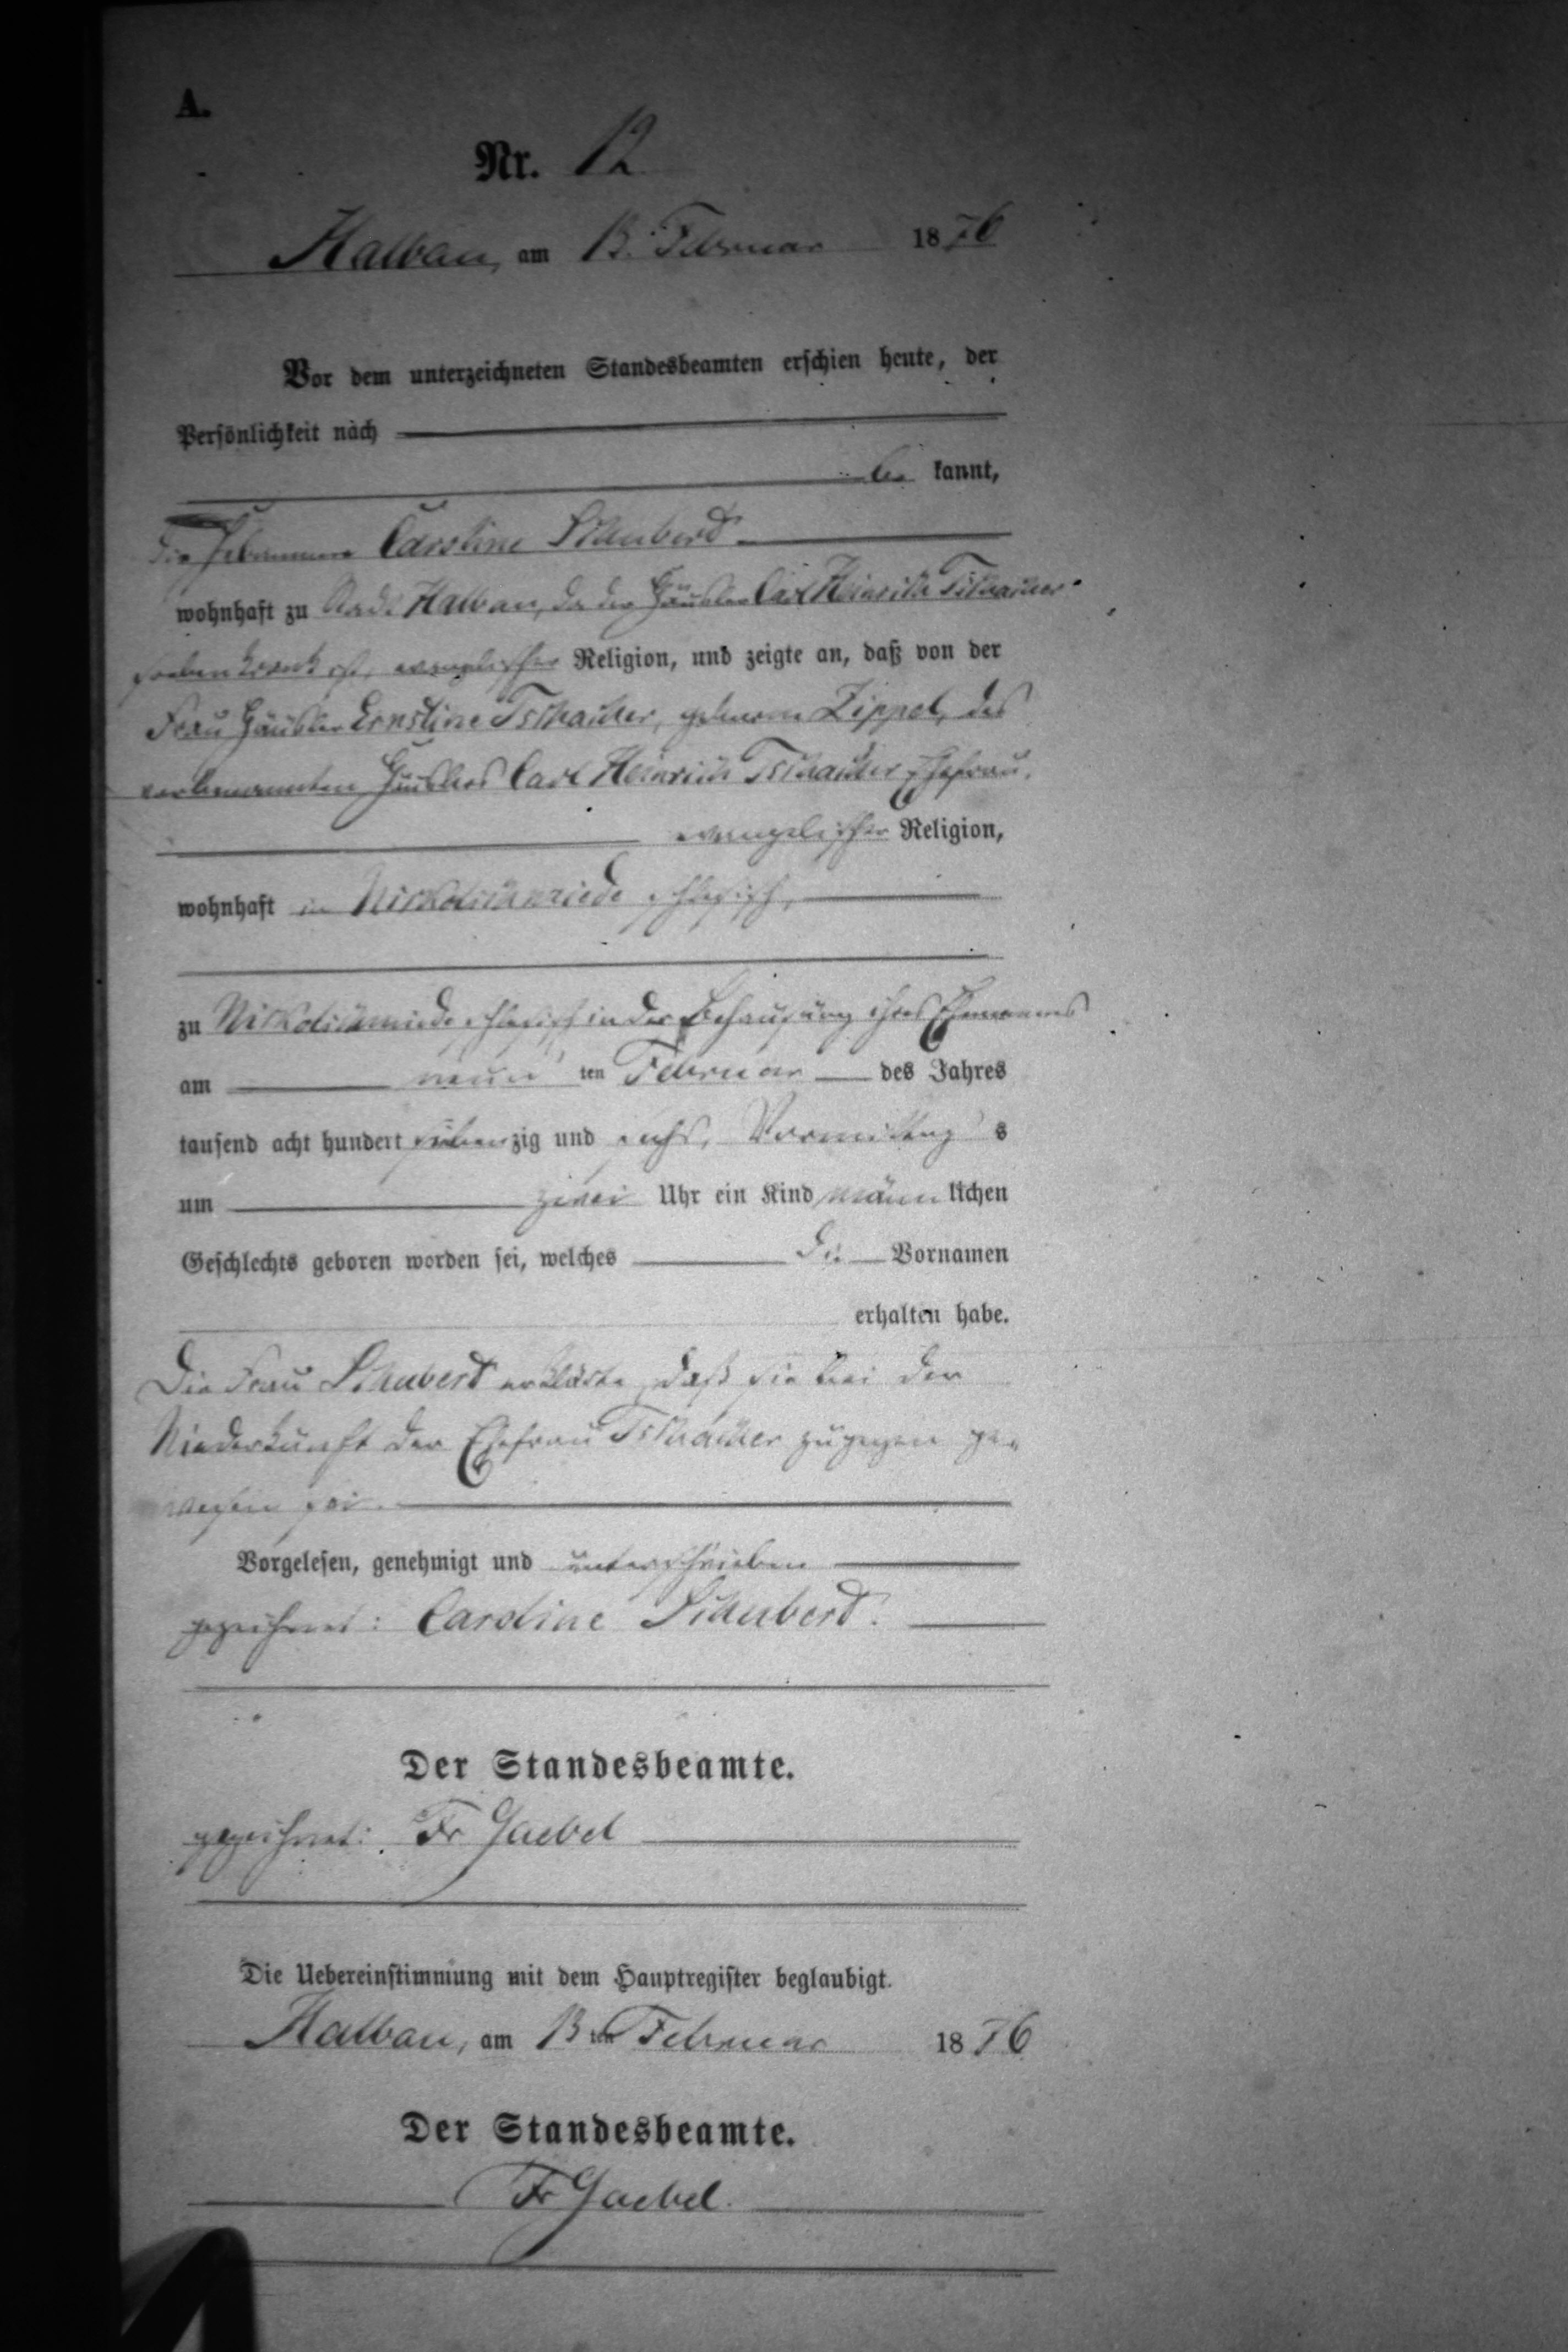 A.
Nr. 12
Halbau, am 13. Februar 1876
Vor dem unterzeichneten Standesbeamten erschien heute, der
Persönlichkeit nach
be kannt,
die Hebamme Caroline Schubert
wohnhaft zu Stadt Halbau, da der Häusler Carl Heinrich Tschacher
krank ist, evangelischer Religion, und zeigte an, daß von der
Frau Häusler Ernstine Tschacher, geborne Zippel, des
vorbenannten Häuslers Carl Heinrich Tschacher Ehefrau,
evangelischer Religion,
wohnhaft in Nikolschmiede schlesisch,
zu Nikolschmiede schlesisch in der Behausung ihres Ehemannes
am neun ten Februar des Jahres
tausend acht hundert sieben zig und sechs, Vormittag s
um zwei Uhr ein Kind männ lichen
Geschlechts geboren worden sei, welches die Vornamen
erhalten habe.
Die Frau Schubert erklärte, daß sie bei der
Niederkunft der Ehefrau Tschacher zugegen ge-
wesen sei.
Vorgelesen, genehmigt und unterschrieben
gezeichnet: Caroline Schubert.
Der Standesbeamte.
gezeichnet: Fr Gaebel
Die Uebereinstimmung mit dem Hauptregister beglaubigt.
Halbau, am 13ten Februar 1876
Der Standesbeamte.
Fr Gaebel.